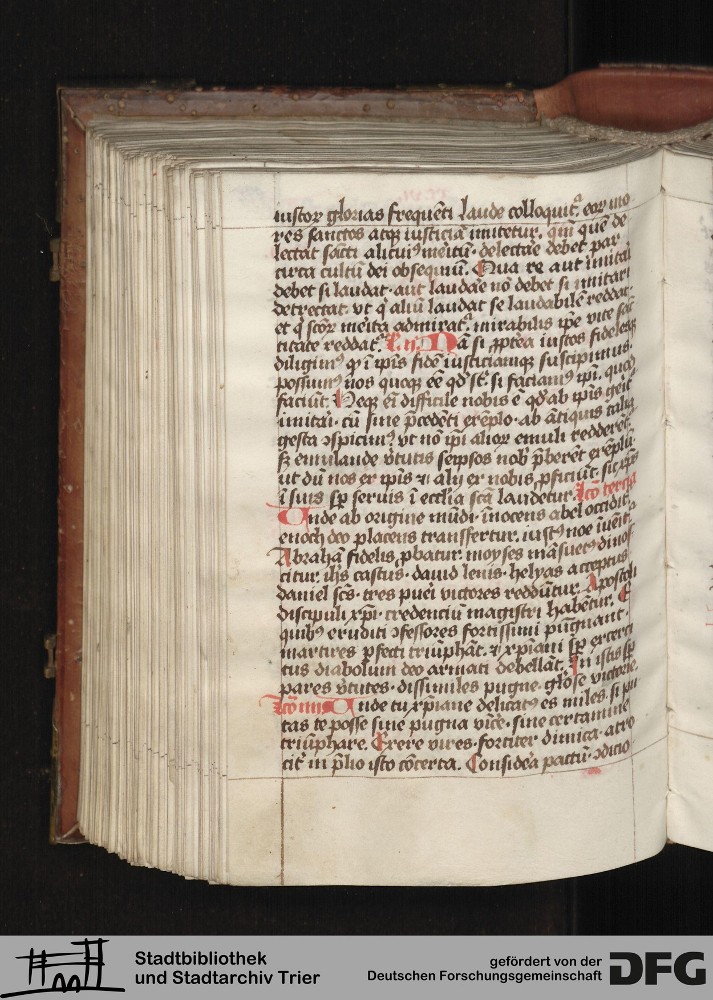 iustoꝝ glorias frequēti laude colloquit᷑. eoꝝ mo
res sanctos atqꝫ iusticiā imitetur. qm̄ quē de
lectat sācti alicuiꝰ meritū · delectare debet par
circa cultū dei obsequiū. Qua re aut imitari
debet si laudat · aut laudare nō debet si imitari
detrectat. vt qͥ aliū laudat se laudabilē reddat.
et qͥ scōꝝ merita admirat᷑. mirabilis ip̄e vite sāc
titate reddat᷑. L. ij. Nā si ꝓpterea iustos fidelesqꝫ
diligimꝰ qꝛ ī ip̄is fidē iusticiamqꝫ suscipimus.
possumꝰ nos quoqꝫ eē qd̓ st̄. si faciamꝰ ip̄i. quod
faciūt. Neqꝫ eī difficile nobis ē qd̓ ab ip̄is gerit᷑
imitari. cū sine p̄cedēti exēplo · ab ātiquis talia
gesta ꝯspicimꝰ. vt nō ip̄i alioꝝ emuli redderēt᷑
sꝫ emulande v̓tutis seip̄sos nob̓ p̄berēt exēplū.
ut dū nos ex ip̄is ⁊ alij ex nobis ꝓficiūt. sic xp̄s
ī suis sꝑ seruis ī eccl̓ia scā laudetur. Lcō tercia
Unde ab origine mūdi · īnocens abel occidit᷑.
enoch deo placens transfertur. iustꝰ noe īuēit᷑.
Abrahā fidelis ꝓbatur. moyses māsuetꝰ dinos
citur. ih̄s castus · dauid lenis · helyas acceptus
daniel scs̄ · tres pueri victores reddūtur. Apostoli
discipuli xp̄i · credenciū magistri habētur. E
quibꝰ eruditi ꝯfessores fortissimi pūgnant ·
martires ꝑfecti triūphāt. ⁊ xp̄iani sꝑ exerci
tus diabolum deo armati debellāt. In istis sꝑ
pares v̓tutes · dissimiles pugne · gl̓ose victorie.
Lcō iiij Unde tu xp̄iane delicatꝰ es miles. si pu
tas te posse sine pugna vīce̓ · sine certamine
triūphare. Exere vires · fortiter dimica · atro
cit᷑ in p̄lio isto cōcerta. Considera pactū · ꝯdicio
Stadtbibliothek
und Stadtarchiv Trier
gefördert von der
Deutschen Forschungsgemeinschaft
DFG